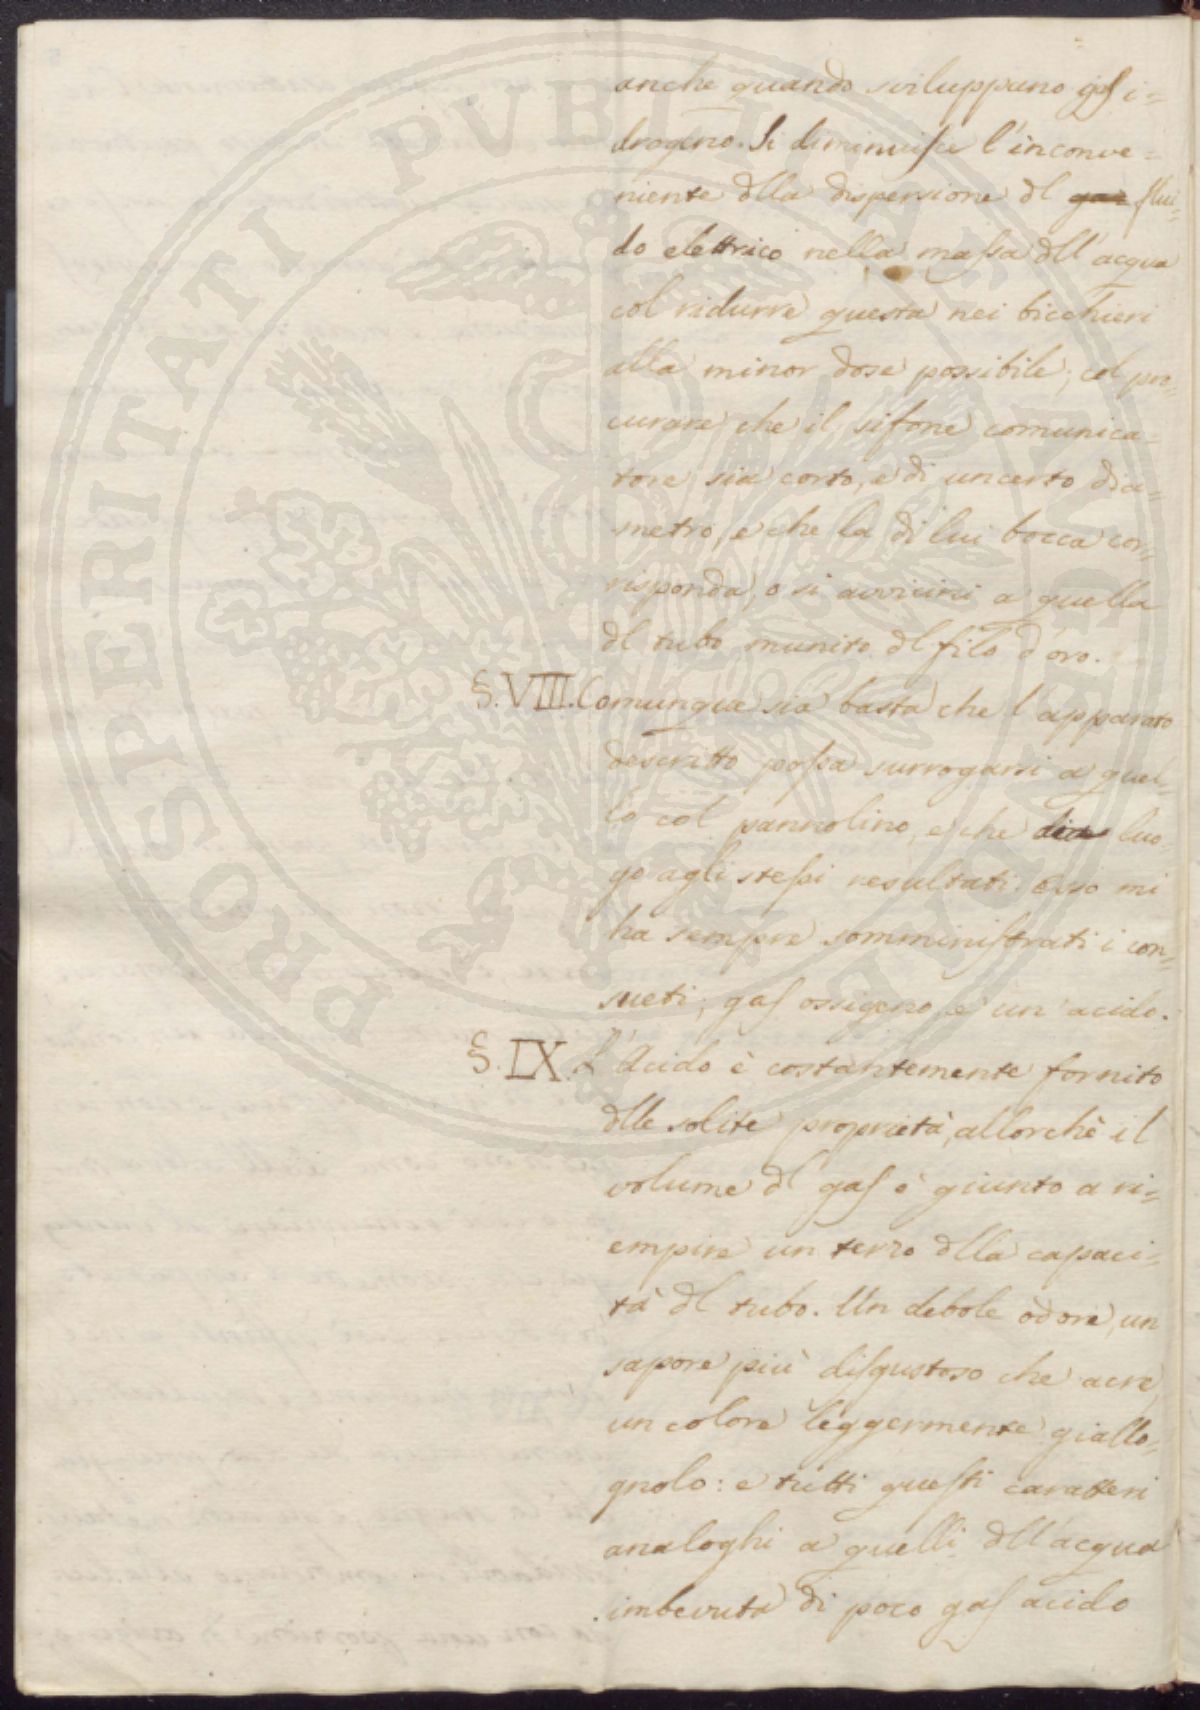 anche quando sviluppano gas i=
drogeno. Si diminuisce l'inconve=
niente dlla dispersione dl gas flui=
do elettrico nella massa dll' acqua
col ridurre questa nei bicchieri
alla minor dose possibile; col pro=
curare che il sifone comunica=
tore sia corto, e di un certo dia=
metro, e che la di lui bocca cor=
risponda, o si avvicini a quella
dl tubo munito dl filo d'oro.
§. VIII. Comunque sia basta che l'apparato
descritto possa surrogarsi a quel=
lo col pannolino, e che dia luo=
go agli stessi resultati. Esso mi
ha sempre somministrati i con=
sueti; gas ossigeno, e un' acido.
§. IX. L' Acido è costantemente fornito
dlle solite proprietà, allorchè il
volume dl gas è giunto a ri=
empire un terzo dlla capaci=
tà dl tubo. Un debole odore, un
sapore più disgustoso che acre,
un colore leggermente giallo=
gnolo: e tutti questi caratteri
analoghi a quelli dll'acqua
imbevuta di poco gas acido
PROSPERITATI PUBLICAE AUGENDAE